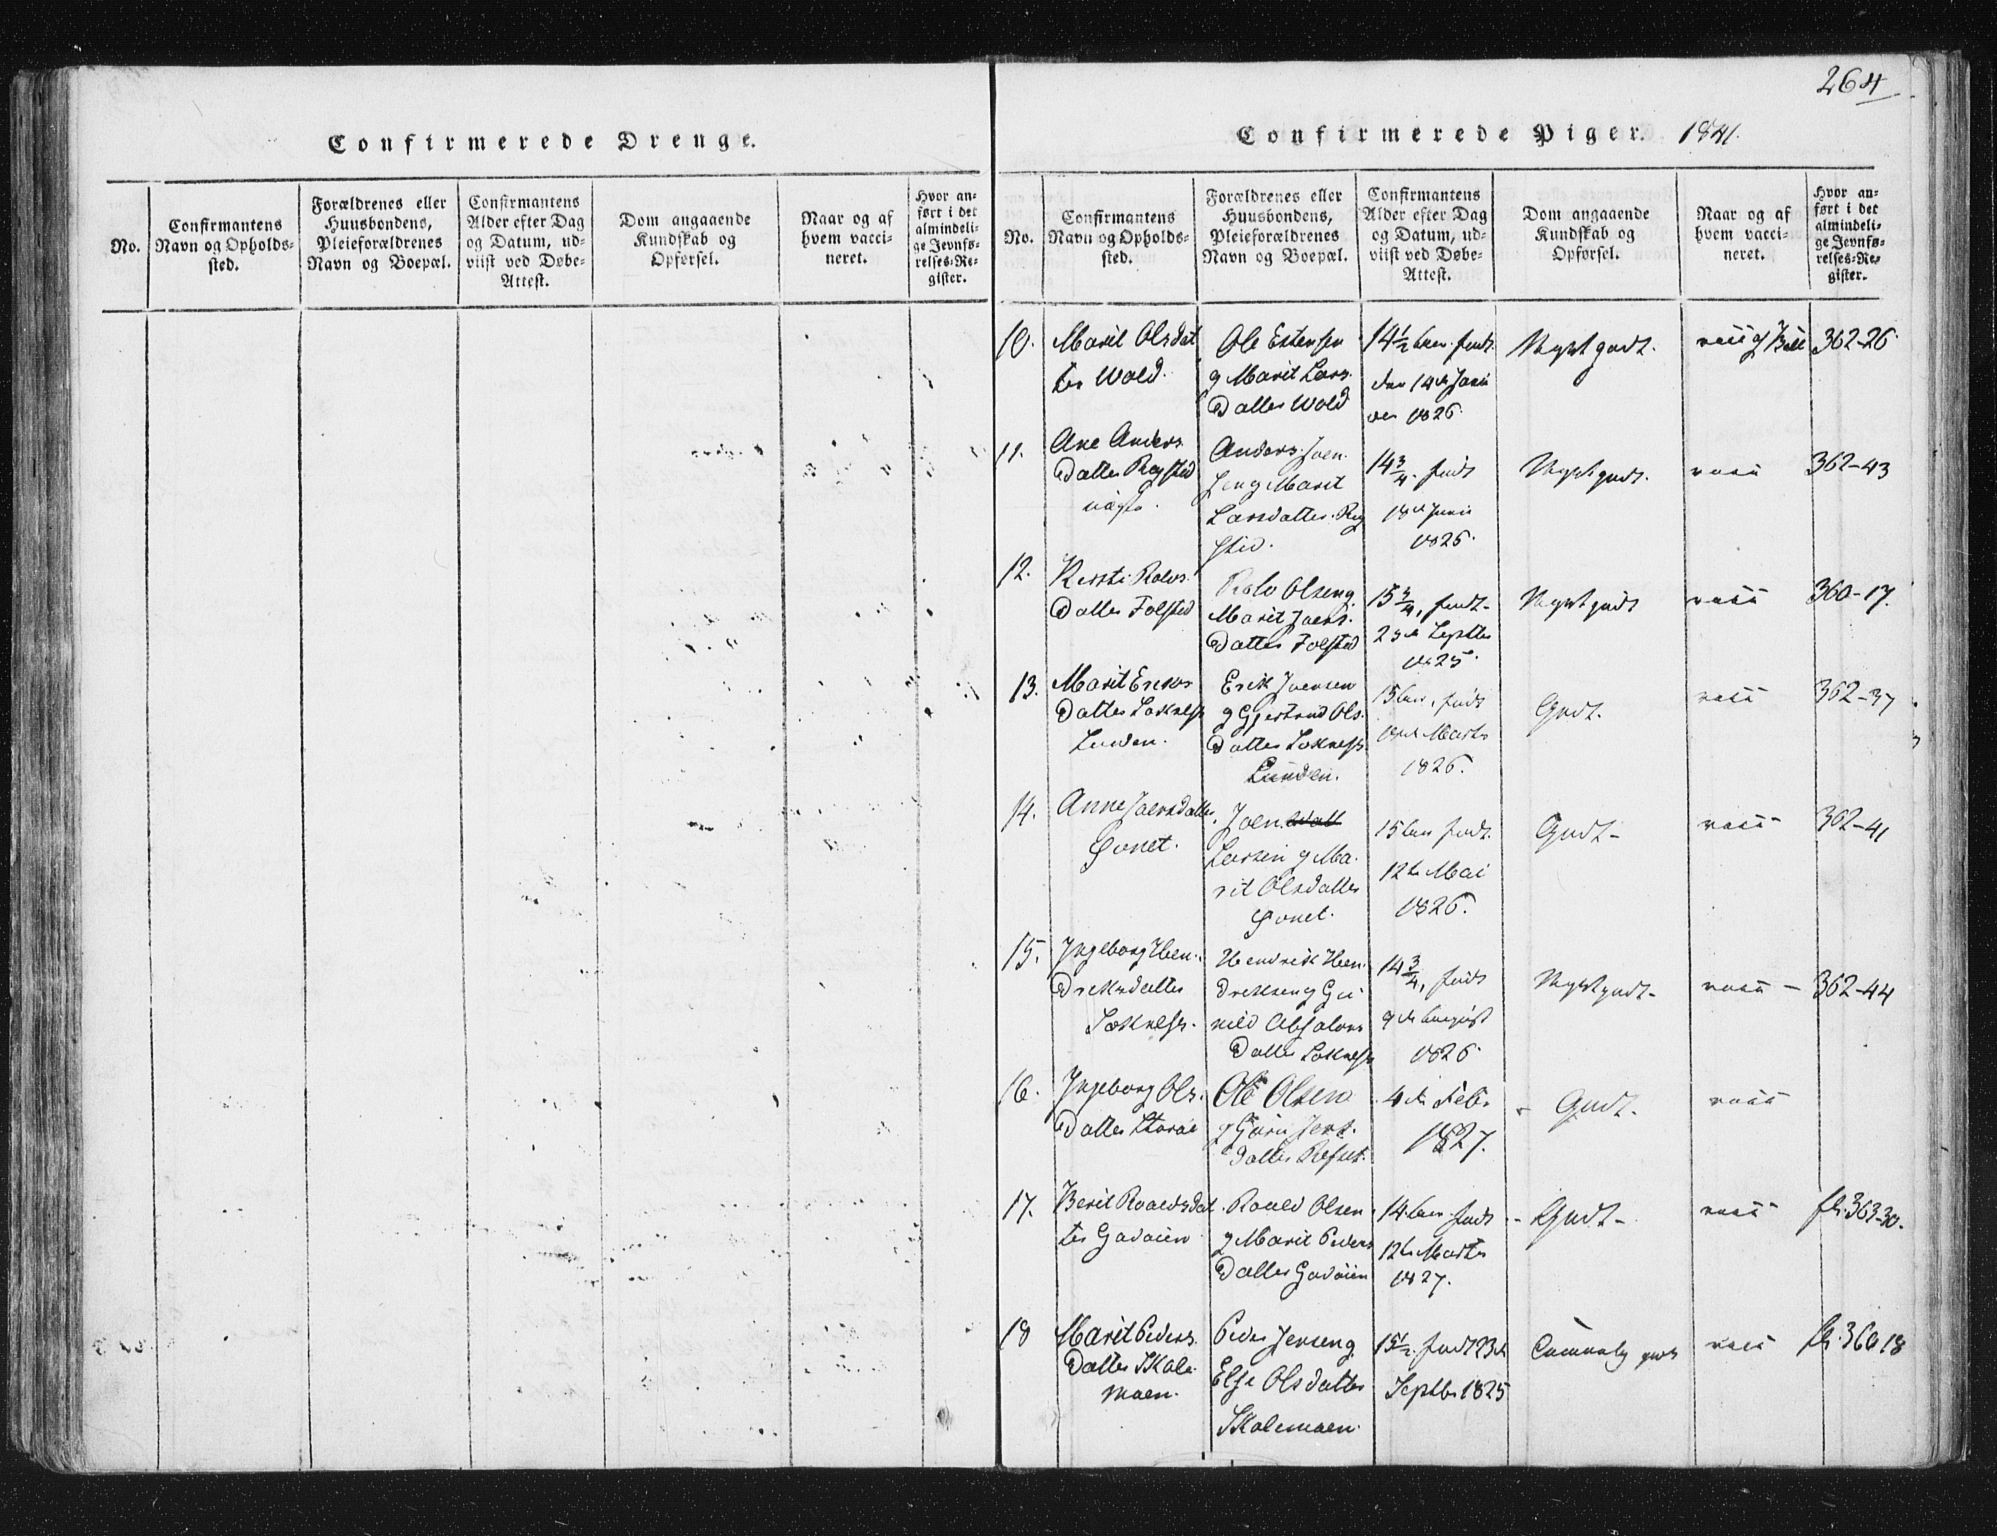 264
Confirmerede Drenge.
No.
Confirmantens
Navn og Opholds-
sted.
Forældrenes eller
Huusbondens,
Pleieforældrenes
Navn og Boepæl.
Confirmantens
Alder efter Dag
og Datum, ud-
viist ved Døbe-
Attest.
Dom angaaende
Kundskab og
Opførsel.
Naar og af
hvem vacci-
neret.
Hvor an-
ført i det
almindeli-
ge Jevnfø-
relses-Re-
gister.
Confirmerede Piger. 1841.
No.
Confirmantens
Navn og Opholds-
sted.
Forældrenes eller
Huusbondens,
Pleieforældrenes
Navn og Boepæl.
Confirmantens
Alder efter Dag
og Datum, ud-
viist ved Døbe-
Attest.
Dom angaaende
Kundskab og
Opførsel.
Naar og af
hvem vacci-
neret.
Hvor an-
ført i det
almindeli-
ge Jevnfø-
relses-Re-
gister.
10.
Marit Olsdat
ter Wold.
Ole Estensen
g Marit Lars
datter Wold
14 1/2 født
den 14de
1826.
Meget godt.
362-26
11.
Ane Anders
datter
Anders Joen
sen g Marit
Larsdatter
sted.
14 3/4 født
18de Juni
1826.
Meget godt.
vacc
362-43
12.
Kersti Rolvs
datter Folstad
Rolv Olsen g
Marit Joens
datter Folstad
15 3/4, født
23de Septbr
1825.
Meget godt
vacc
360-17.
13.
Marit Eriks
datter Loknes
Lunden.
Erik Joensen
g Gjertrud Ols
datter Loknes
Lunden.
15 født
Marts
1826.
Godt.
vacc
362-37
14.
Anne Joensdatter
Joen
Larsen g Ma
rit Olsdatter
15 født.
12te Mai
1826.
Godt-
vacc
362-41
15.
Ingeborg Hen
driksdatter
Loknes.
Hendrik Hen
driksen g Gu
nild Absalons
datter Loknes
14 3/4, født
9de August
1826.
Meget godt-
vacc -
362-44
16.
Ingeborg Ols
datter
Ole Olsen
g Guru Jens
datter
4de Febr
1827.
Godt.
vacc
17.
Berit Roaldsdat
ter Gadøien
Roald Olsen
g Marit Peders
datter Gadøien
14 født
12te Marts
1827.
Godt-
vacc
fl. 363-30.
18
Marit Peders
datter Skole
moen.
Peder Jensen g
Else Olsdatter
Skolemoen.
15 1/2. født 23de
Septbr 1825
vacc
fl. 360 18